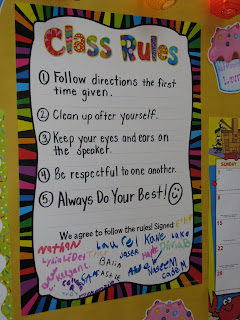 Class Rules
1 Follow directions the first
time given.
2 Clean up after yourself.
3 Keep your eyes and ears on
the speaker.
4 Be respectful to one another.
5 Always Do Your Best!
We agree to follow the rules! Signed:
Nathan
Laurel Kane Luke
Jaser
Basia
SUNDAY